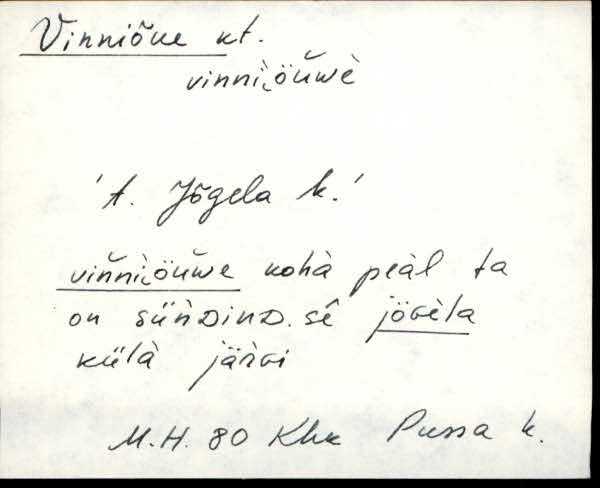 Vinniõue kt.
vinni̮öŭwè
't. Jõgela k.'
vińni̮öŭwe kohà peàl ta
on sünDinD. sê jöGèla
külà järvi
M.H. 80 Khk Pussa k.